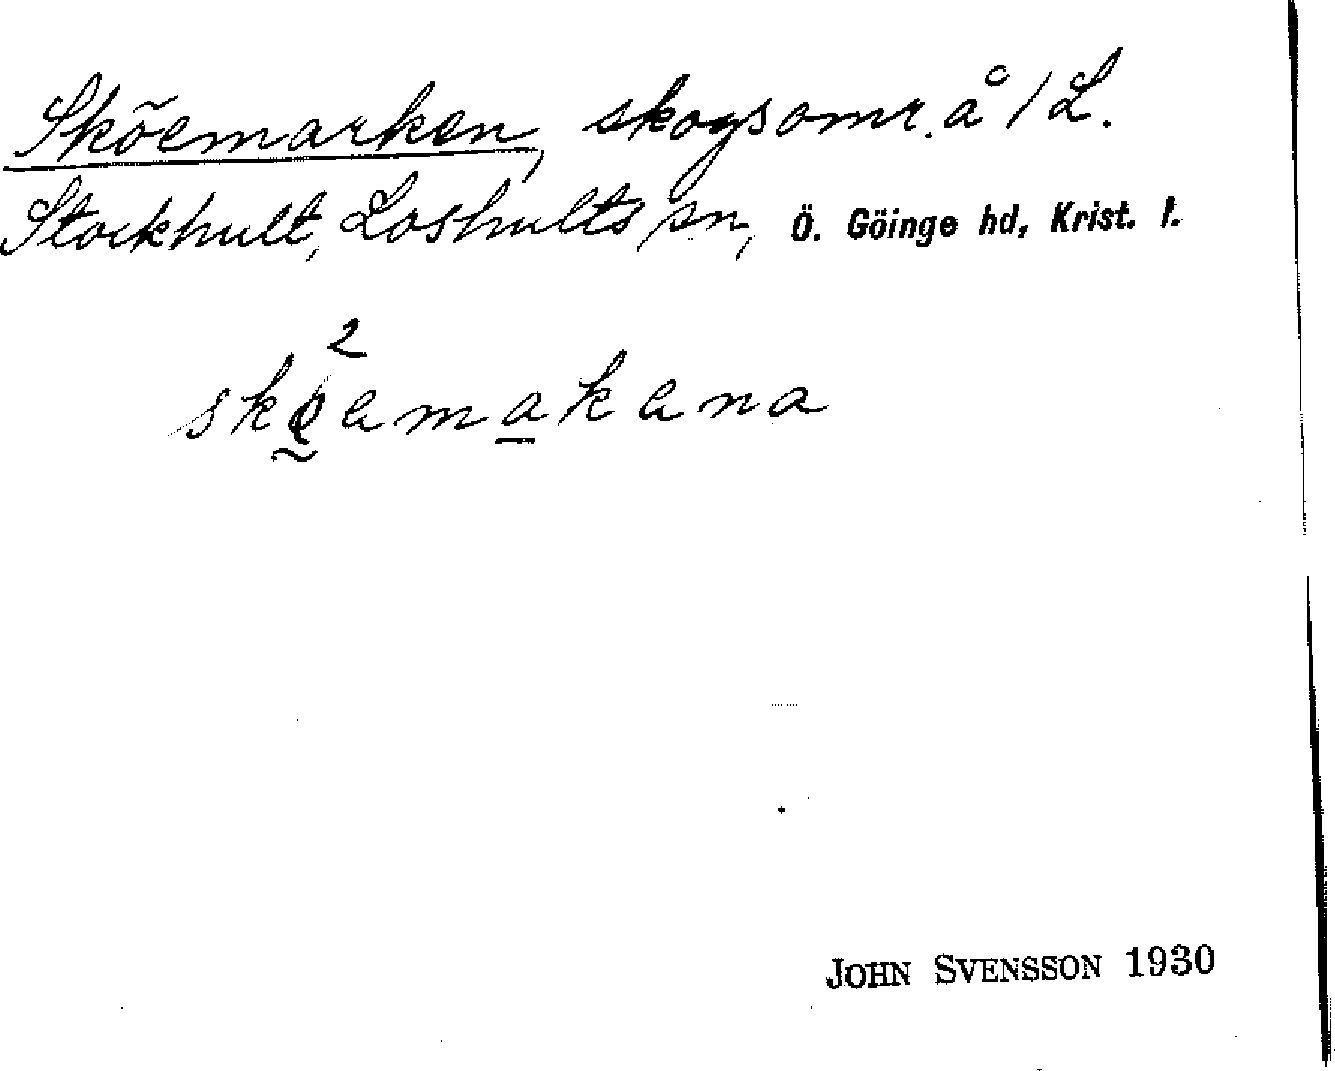 Sköemarken, skogsomr. å 1 L.
Stockhult, Loshults sn, Ö. Göinge hd, Krist. l.
2
skøamakana
JOHN SVENSSON 1930